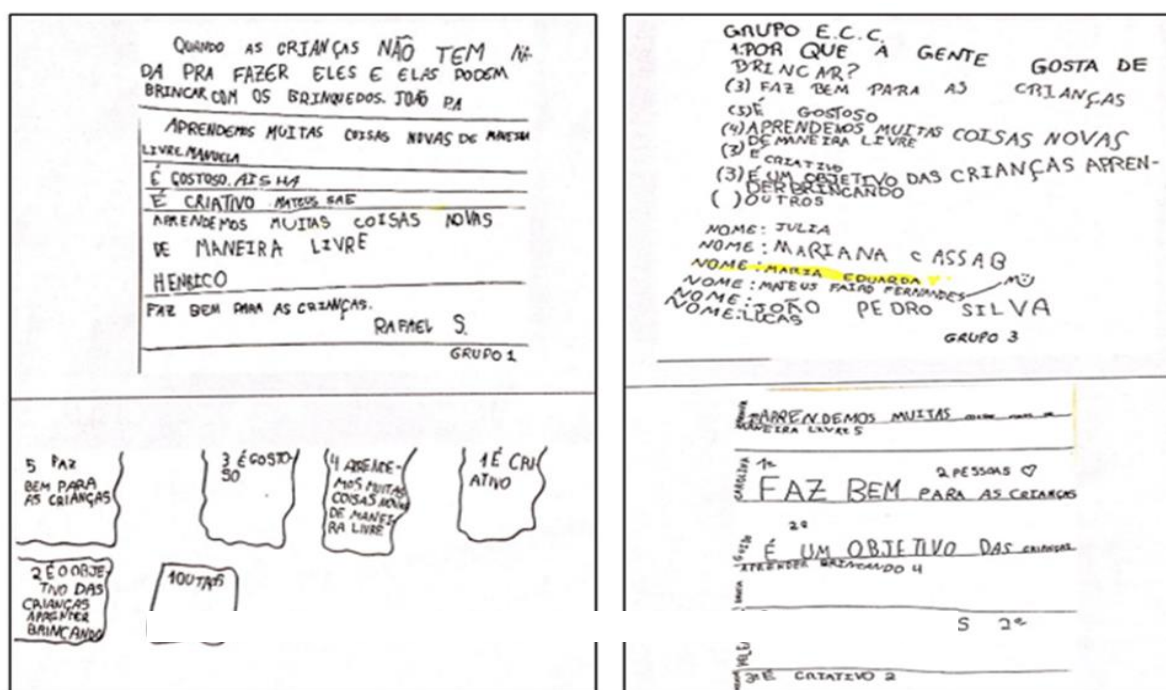 QUANDO AS CRIANÇAS NÃO TEM NA-
DA PRA FAZER ELES E ELAS PODEM
BRINCAR COM OS BRINQUEDOS. JOÃO PA
APRENDEMOS MUITAS COISAS NOVAS DE MANEIRA
LIVRE MANUELA
É GOSTOSO. AISHA
É CRIATIVO MATEUS SAE
APRENDEMOS MUITAS COISAS NOVAS
DE MANEIRA LIVRE
HENRICO
FAZ BEM PARA AS CRIANÇAS.
RAFAEL S.
GRUPO 1
5 FAZ
BEM PARA
AS CRIANÇAS
3 É GOSTO-
SO
4 APRENDE-
MOS MUITAS
COISAS NOVAS
DE MANEI
RA LIVRE
1 É CRI
ATIVO
2 É O OBJE
TIVO DAS
CRIANÇAS
APRENTER
BRINCANDO
1 OUTROS
GRUPO E.C.C.
1. POR QUE A GENTE GOSTA DE
BRINCAR?
(3) FAZ BEM PARA AS CRIANÇAS
(5) É GOSTOSO
(4) APRENDEMOS MUITAS COISAS NOVAS
DE MANEIRA LIVRE
(3) É CRIATIVO
(3) É UM OBJETIVO DAS CRIANÇAS APREN-
DER BRINCANDO
( ) OUTROS
NOME: JULIA
NOME: MARIANA CASSAB
NOME: MARIA EDUARDA
NOME: MATEUS FAIRO FERNANDES
NOME: JOÃO PEDRO SILVA
NOME: LUCAS
GRUPO 3
APRENDEMOS MUITAS
MANEIRA LIVRE 5
CAROLINA
1º
2 PESSOAS ♡
FAZ BEM PARA AS CRIANÇAS
2º
É UM OBJETIVO DAS CRIANÇAS
APRENDER BRINCANDO 4
5 2º
3º É CRIATIVO 2